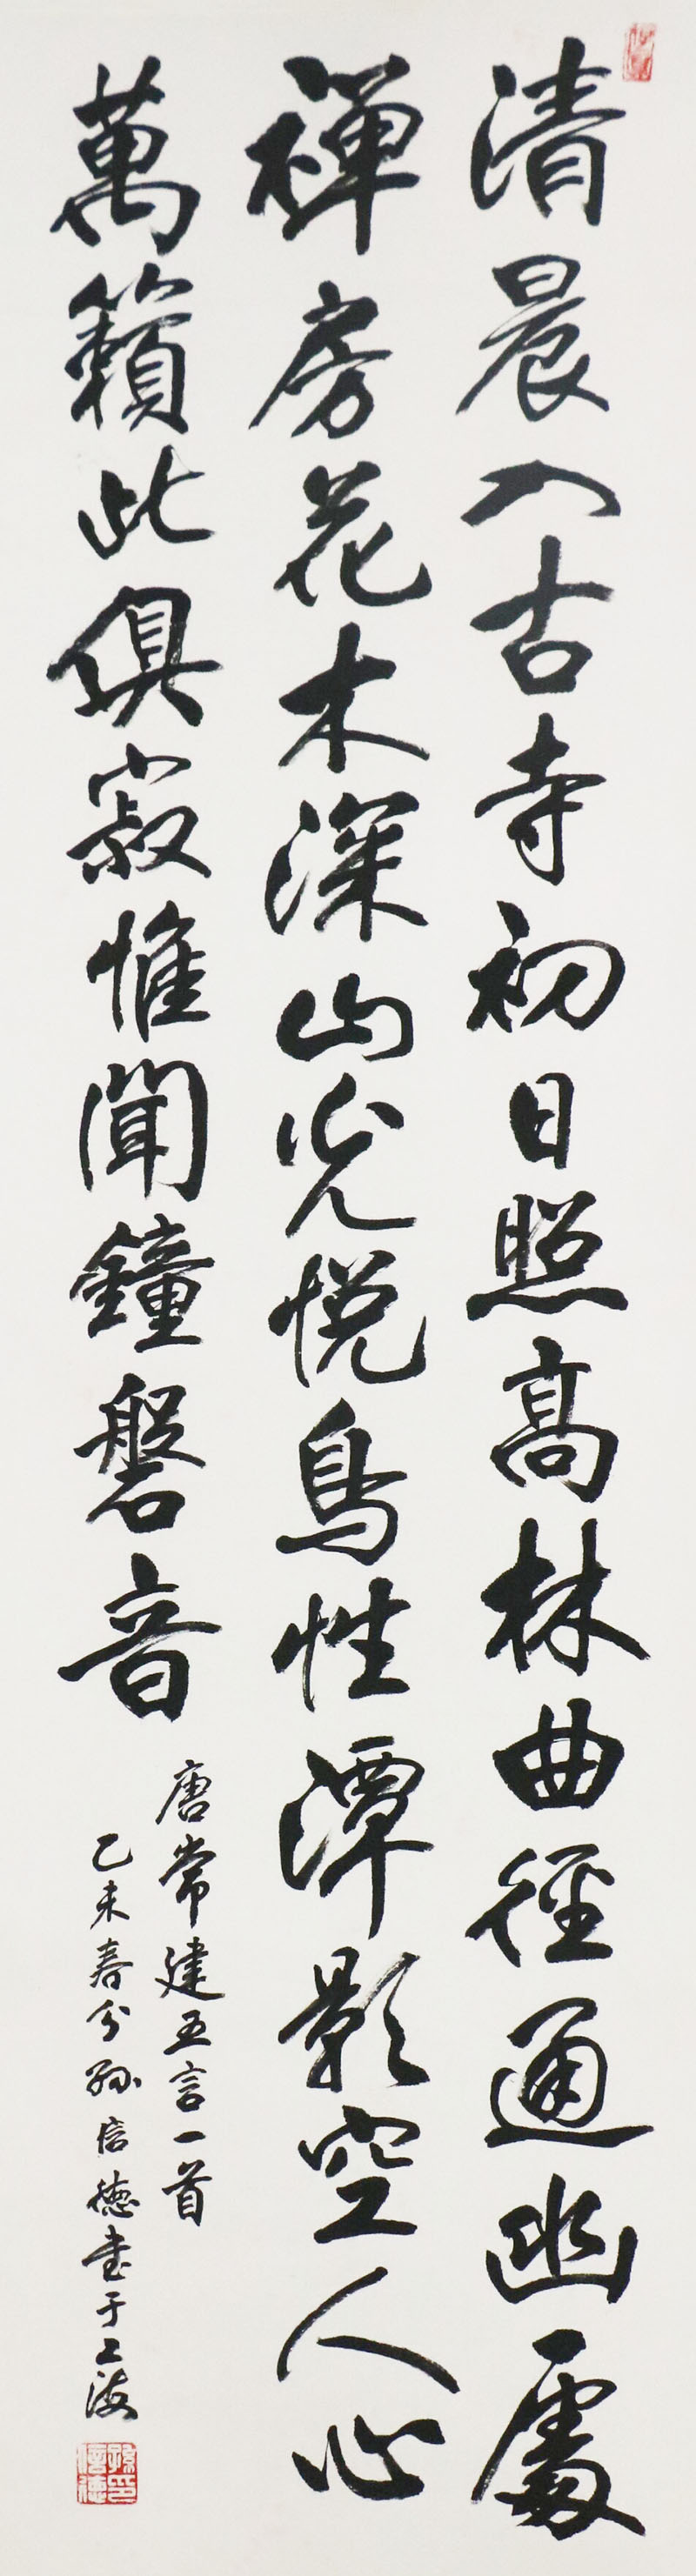 清晨入古寺初日照高林曲徑通幽處
禪房花木深山光悅鳥性潭影空人心
萬籟此俱寂惟聞鐘磬音
唐常建五言一首
乙未春分孫信德書于上海
孫信德印